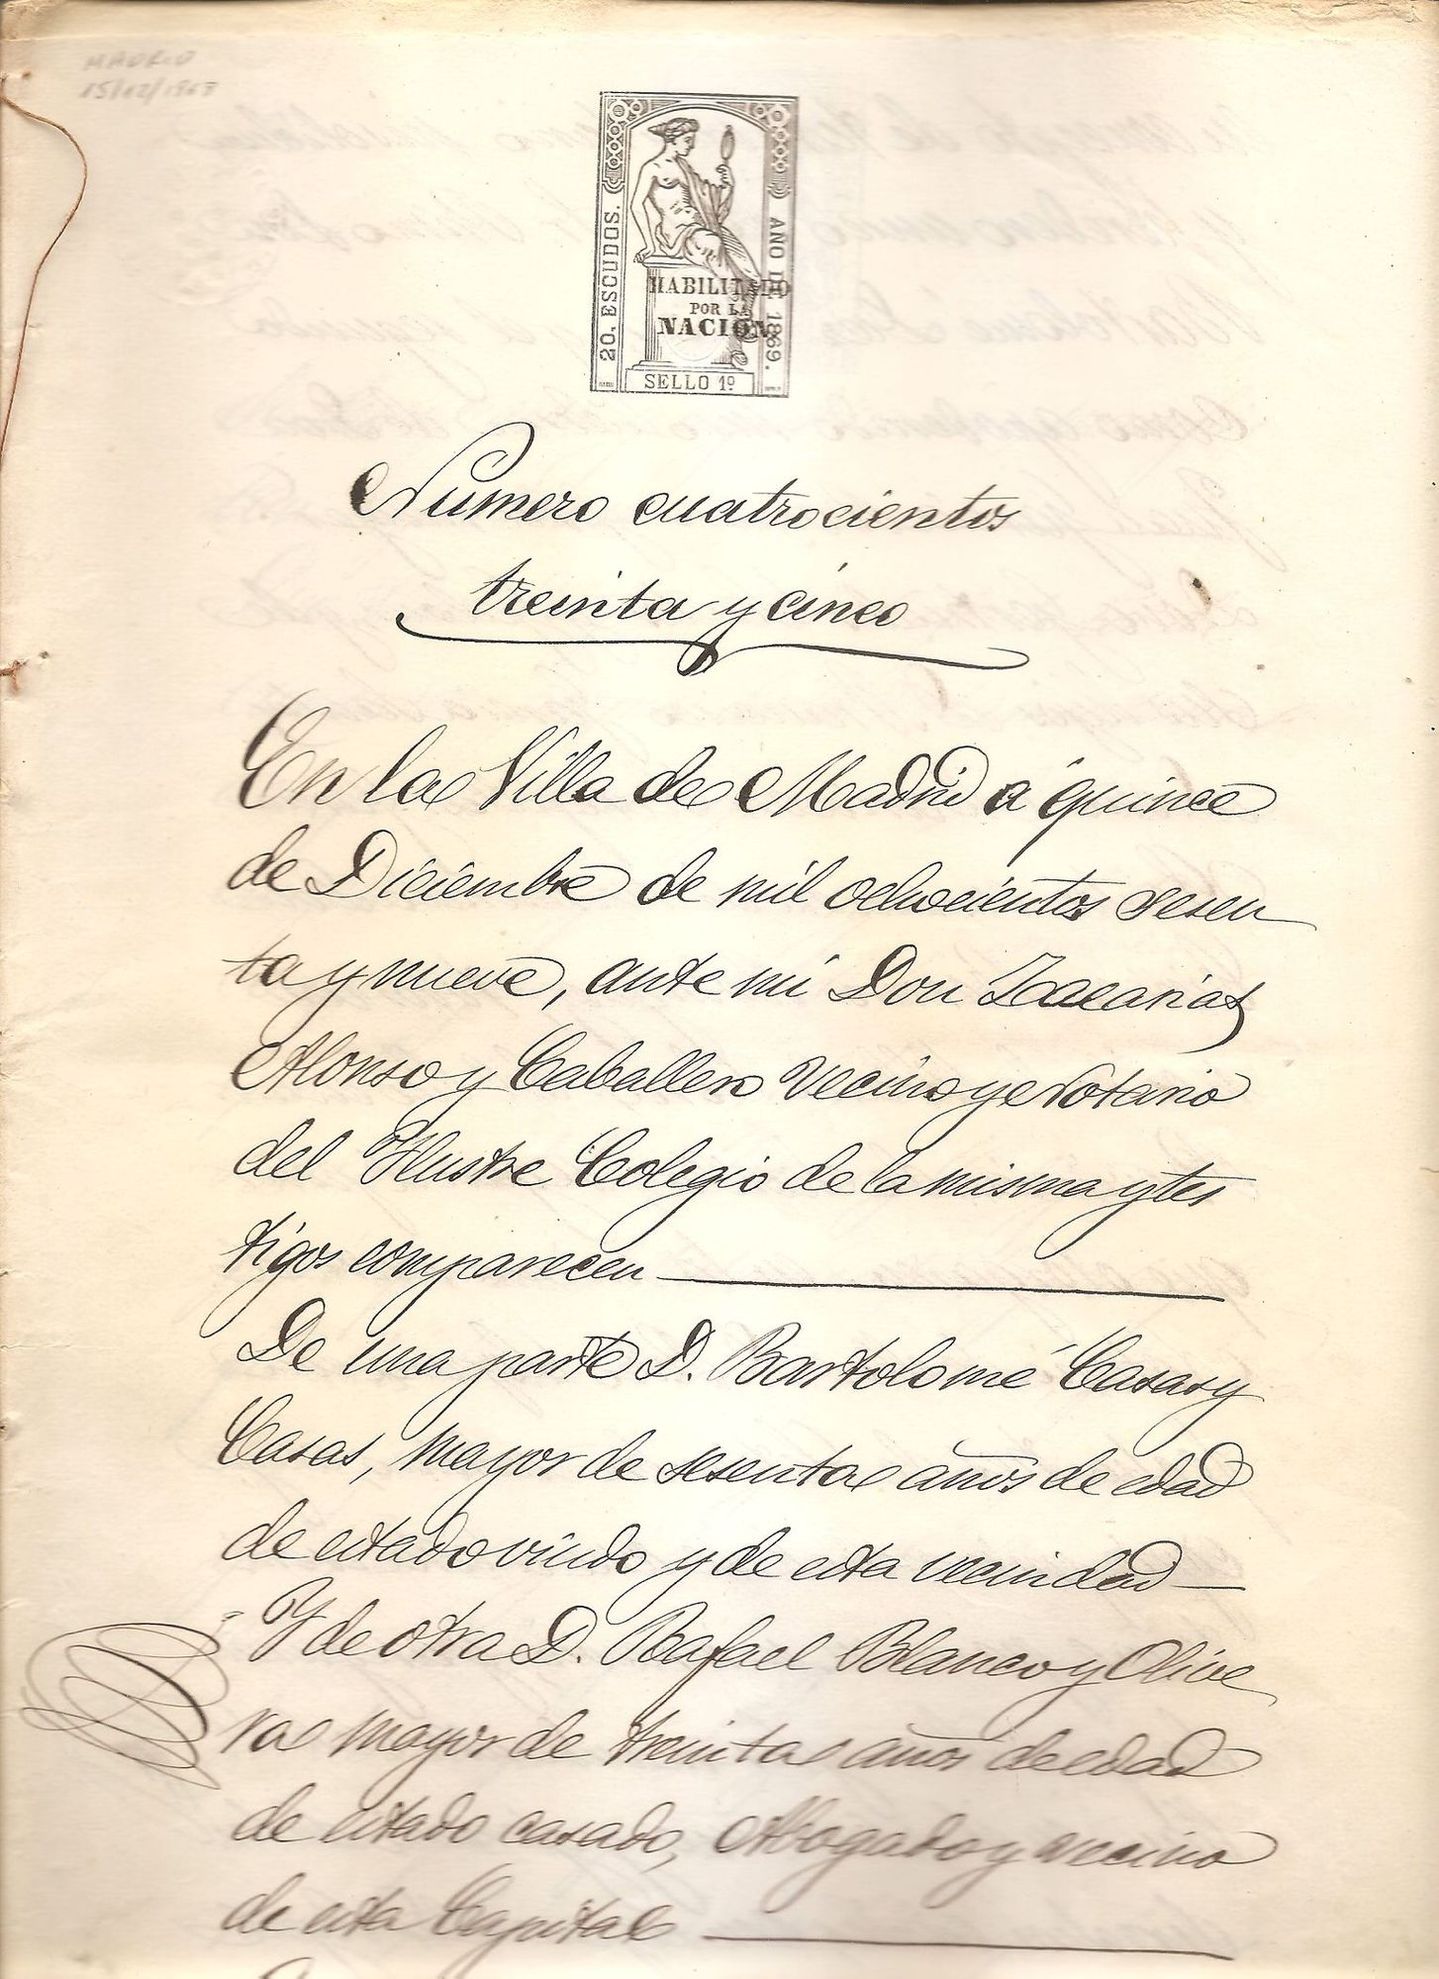 MADRID
15/12/1969
20. ESCUDOS.
AÑO DE 1869.
HABILITADO
POR LA
NACION
SELLO 1º
Numero cuatrocientos
treinta y cinco
En la Villa de Madrid a quince
de Diciembre de mil ochocientos sesen
ta y nueve, ante mi Don Zacarias
Alonso y Caballero vecino y Notario
del Ilustre Colegio de la misma y tes
tigos comparecen
De una parte D. Bartolomé Casas y
Casas, mayor de sesenta años de edad
de estado viudo y de esta vecindad
Y de otra D. Rafael Blanco y Olive
ra mayor de treinta años de edad
de estado casado, Abogado y vecino
de esta Capital